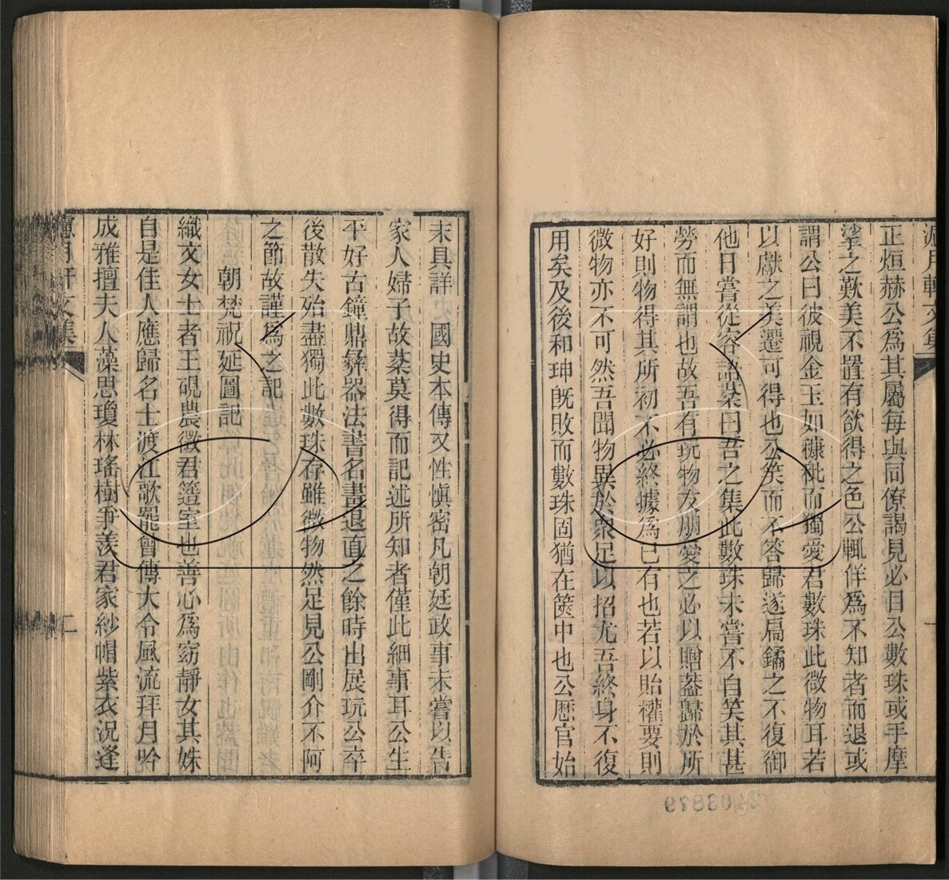 正烜赫公爲其屬每與同僚謁見必目公數珠或手摩
挲之歎美不置有欲得之色公輒佯爲不知者而退或
謂公曰彼視金玉如糠秕而獨愛君數珠此微物耳若
以獻之美遷可得也公笑而不答歸遂扃鐍之不復御
他日嘗從容語棻曰吾之集此數珠未嘗不自笑其甚
勞而無謂也故吾有玩物友朋愛之必以贈葢歸於所
好則物得其所初不必終據爲已有也若以貽權要則
微物亦不可然吾聞物異於衆足以招尤吾終身不復
用矣及後和珅旣敗而數珠固猶在篋中也公歷官始
末具詳 國史本傳又性愼密凡朝廷政事未嘗以告
家人婦子故棻莫得而記述所知者僅此細事耳公生
平好古鐘鼎彝器法書名畫退直之餘時出展玩公卒
後散失殆盡獨此數珠存雖微物然足見公剛介不阿
之節故謹爲之記
朝梵祝延圖記
織文女士者王硯農徵君簉室也善心爲窈靜女其姝
自是佳人應歸名士渡江歌罷曾傳大令風流拜月吟
成雅擅夫人藻思瓊林瑤樹爭羨君家紗帽紫衣況逢
月軒文集
二